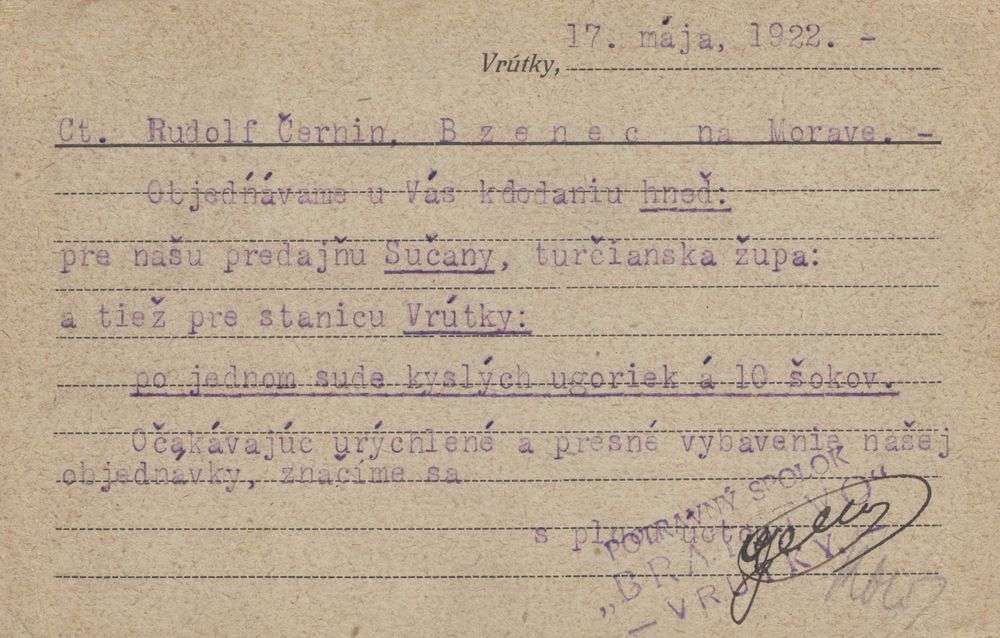 17. mája, 1922. -
Vrútky,
Ct. Rudolf Černin, Bzenec na Morave. -
Objedňávame u Vás kdodaniu hneď:
pre našu predajňu Sučany, turčianska župa:
a tiež pre stanicu Vrútky:
po jednom sude kyslých ugoriek á 10 šokov.
Očakávajúc urýchlené a presné vybavenie našej
objednávky, značíme sa
s plnou úctou
POTRAVNÝ SPOLOK
— VRÚTKY. —